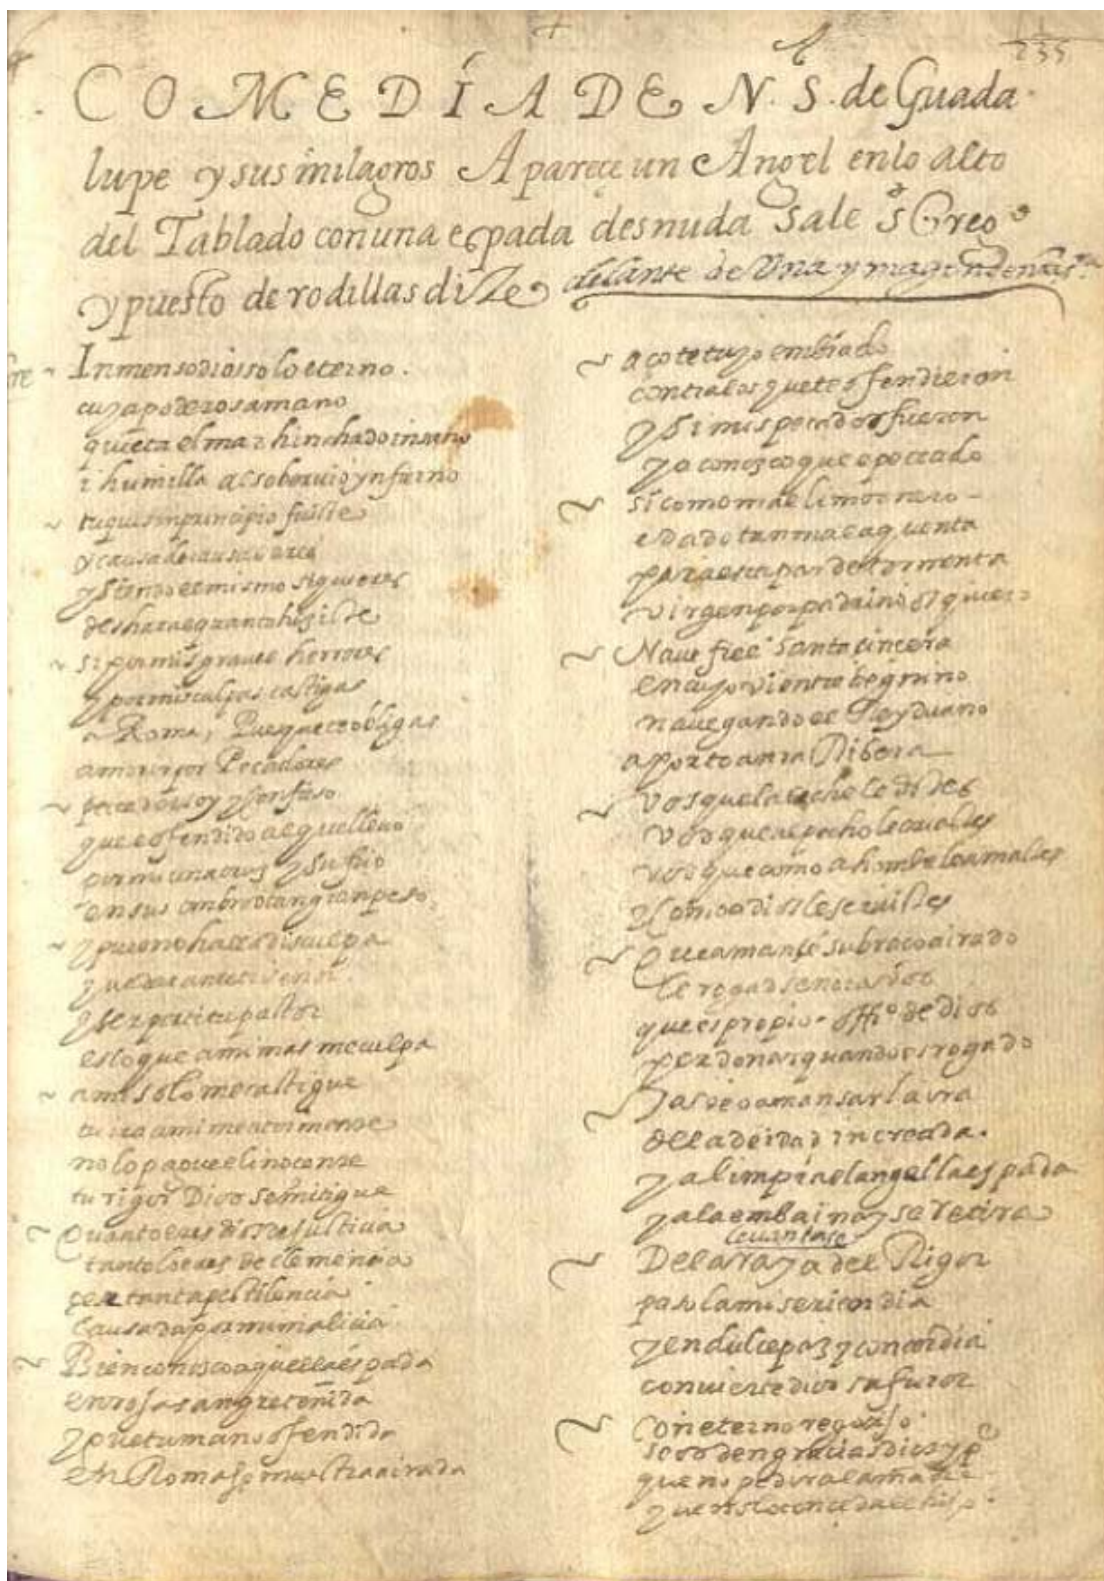 235
COMEDÍA DE N. S. de Guada
lupe y sus milagros Apareçe un Angel en lo alto
del Tablado con una espada desnuda Sale s Greg^o
y puesto de rodillas dize delante de una ymagen de
Inmenso dios solo eterno.
cuya poderosa mano
quieta el mar hinchado insano
i humilla al soberuio ynfierno
tu que sin principio fuiste
y causa de causas eres
y siendo el mismo si quieres
desharas quanto hiziste
si por mis graues herrores
y por mis culpas castigas
a Roma, Pues que te obligas
a morir por Pecadores
pecador soy y confieso
que e ofendido
por mi una cruz y sufrio
en sus ombros tan gran peso.
y pues no hallo disculpa
y ser pastor
es lo que a mi mas me culpa
a mi solo me castigue
tu ira a mi me atormente
no lo pague el inocente
tu rigor Dios se mitigue
Quanto eres dios de justicia
tanto lo eres de clemencia
çese tanta pestilencia
causada por mi malicia
Bien conosco aquella espada
en roja sangre teñida
y que tu mano ofendida
en Roma se muestra airada
açote tuyo embiado
contra los que te ofendieron
y si mis pecados fueron
ya conozco que e peccado
si como mal limosnero
e dado tan mala quenta
para escapar de tormenta
virgen por padrino os quiero
Naue fiel santa sincera
en cuyo vientre begnino
nauegando el Rey diuino
aporto a nra Ribera
Vos que la leche le distes
Vos que al pecho le
vos que como a hombre le amastes
y como a dios le seruistes
Que amanse su braço airado
le rogad señora vos
que es propio offi^o de dios
perdonar quando es rogado
de amansar la yra
de la deidad increada.
ya limpia el angel la espada
ya la embaina y se retira
leuantase
De la raya del Rigor
paso la misericordia
y en dulce paz y concordia
conuierte dios su furor
Con eterno regozijo
se os den gracias dios y p^e
que no pedira la madre
que no lo conceda el hijo.